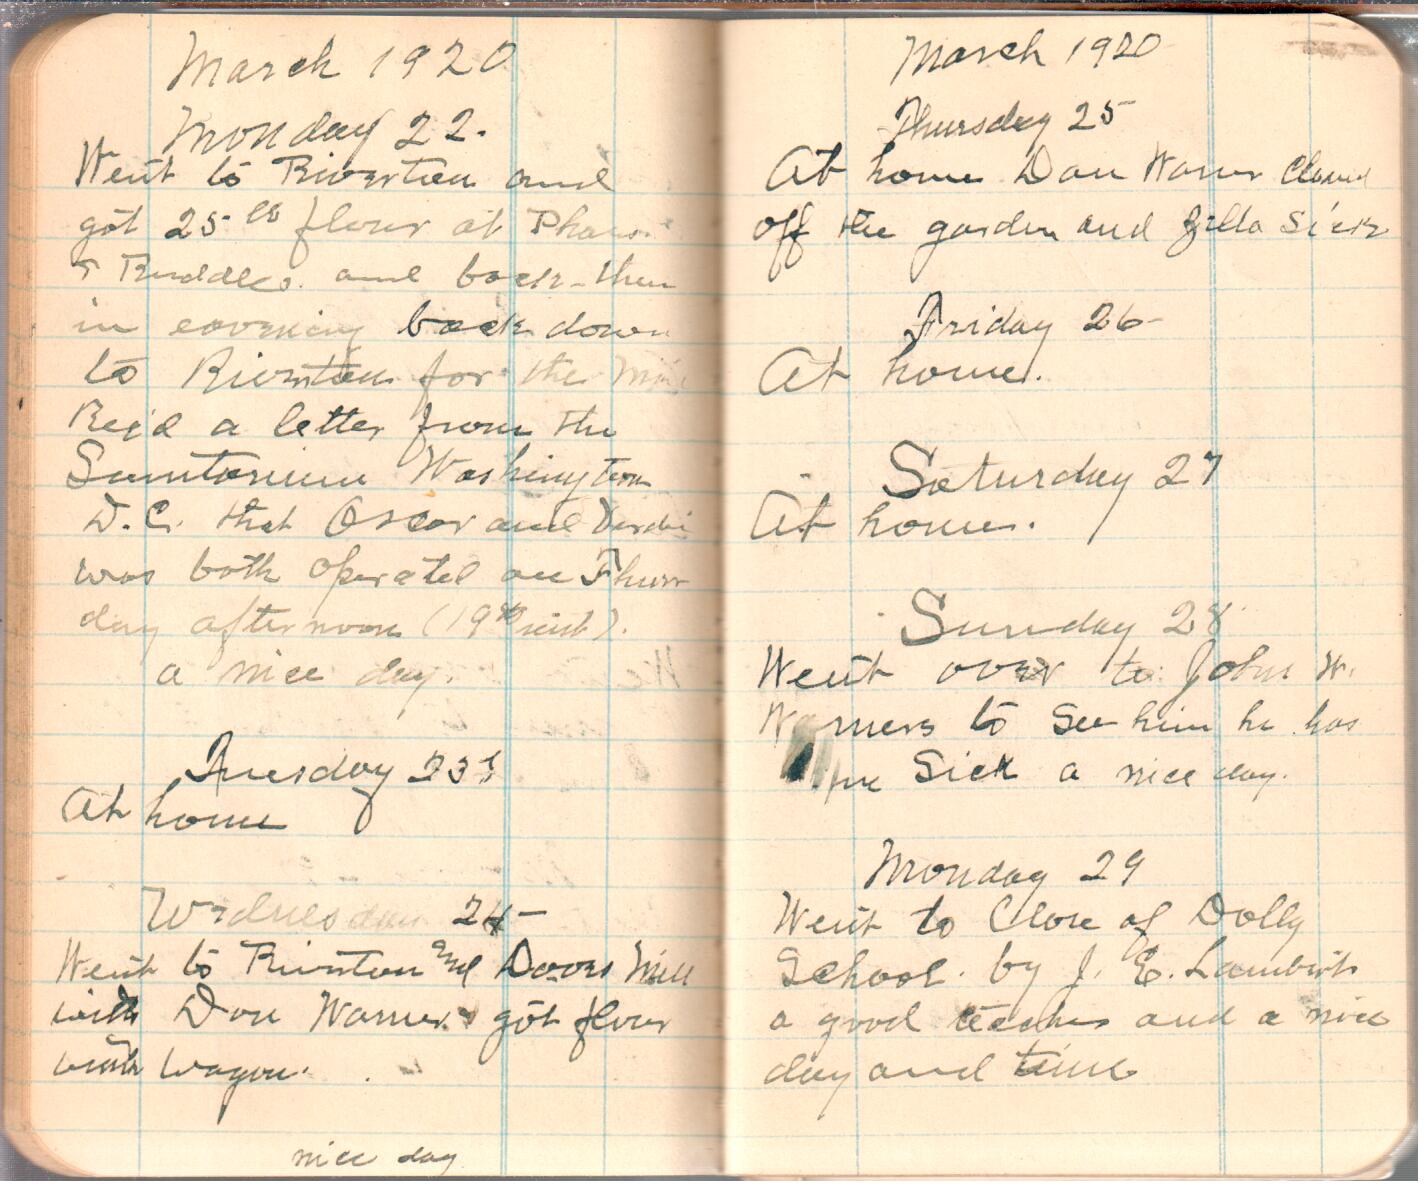 March 1920
Monday 22.
Went to Riverton and
got 25 lb flour at
& Ruddles. and back - then
in eavening back down
to Riverton for the
Rec'd a letter from the
Sanitorium Washington
D.C. that Oscar and
was both operated on Thurs
day afternoon (19th inst).
a nice day.
Tuesday 23d
At home
Wednesday 24-
Went to Riverton and Doors Mill
with Don Warner & got flour
with wagon.
nice day
March 1920
Thursday 25
At home Don Warner Cleaned
off the garden and Zilla Sick
Friday 26-
At home.
Saturday 27
At home.
Sunday 28
Went over to John W.
Warners to See him he has
Sick a nice day.
Monday 29
Went to Close of Dolly
School. by J. E. Lambert
a good teacher and a nice
day and time